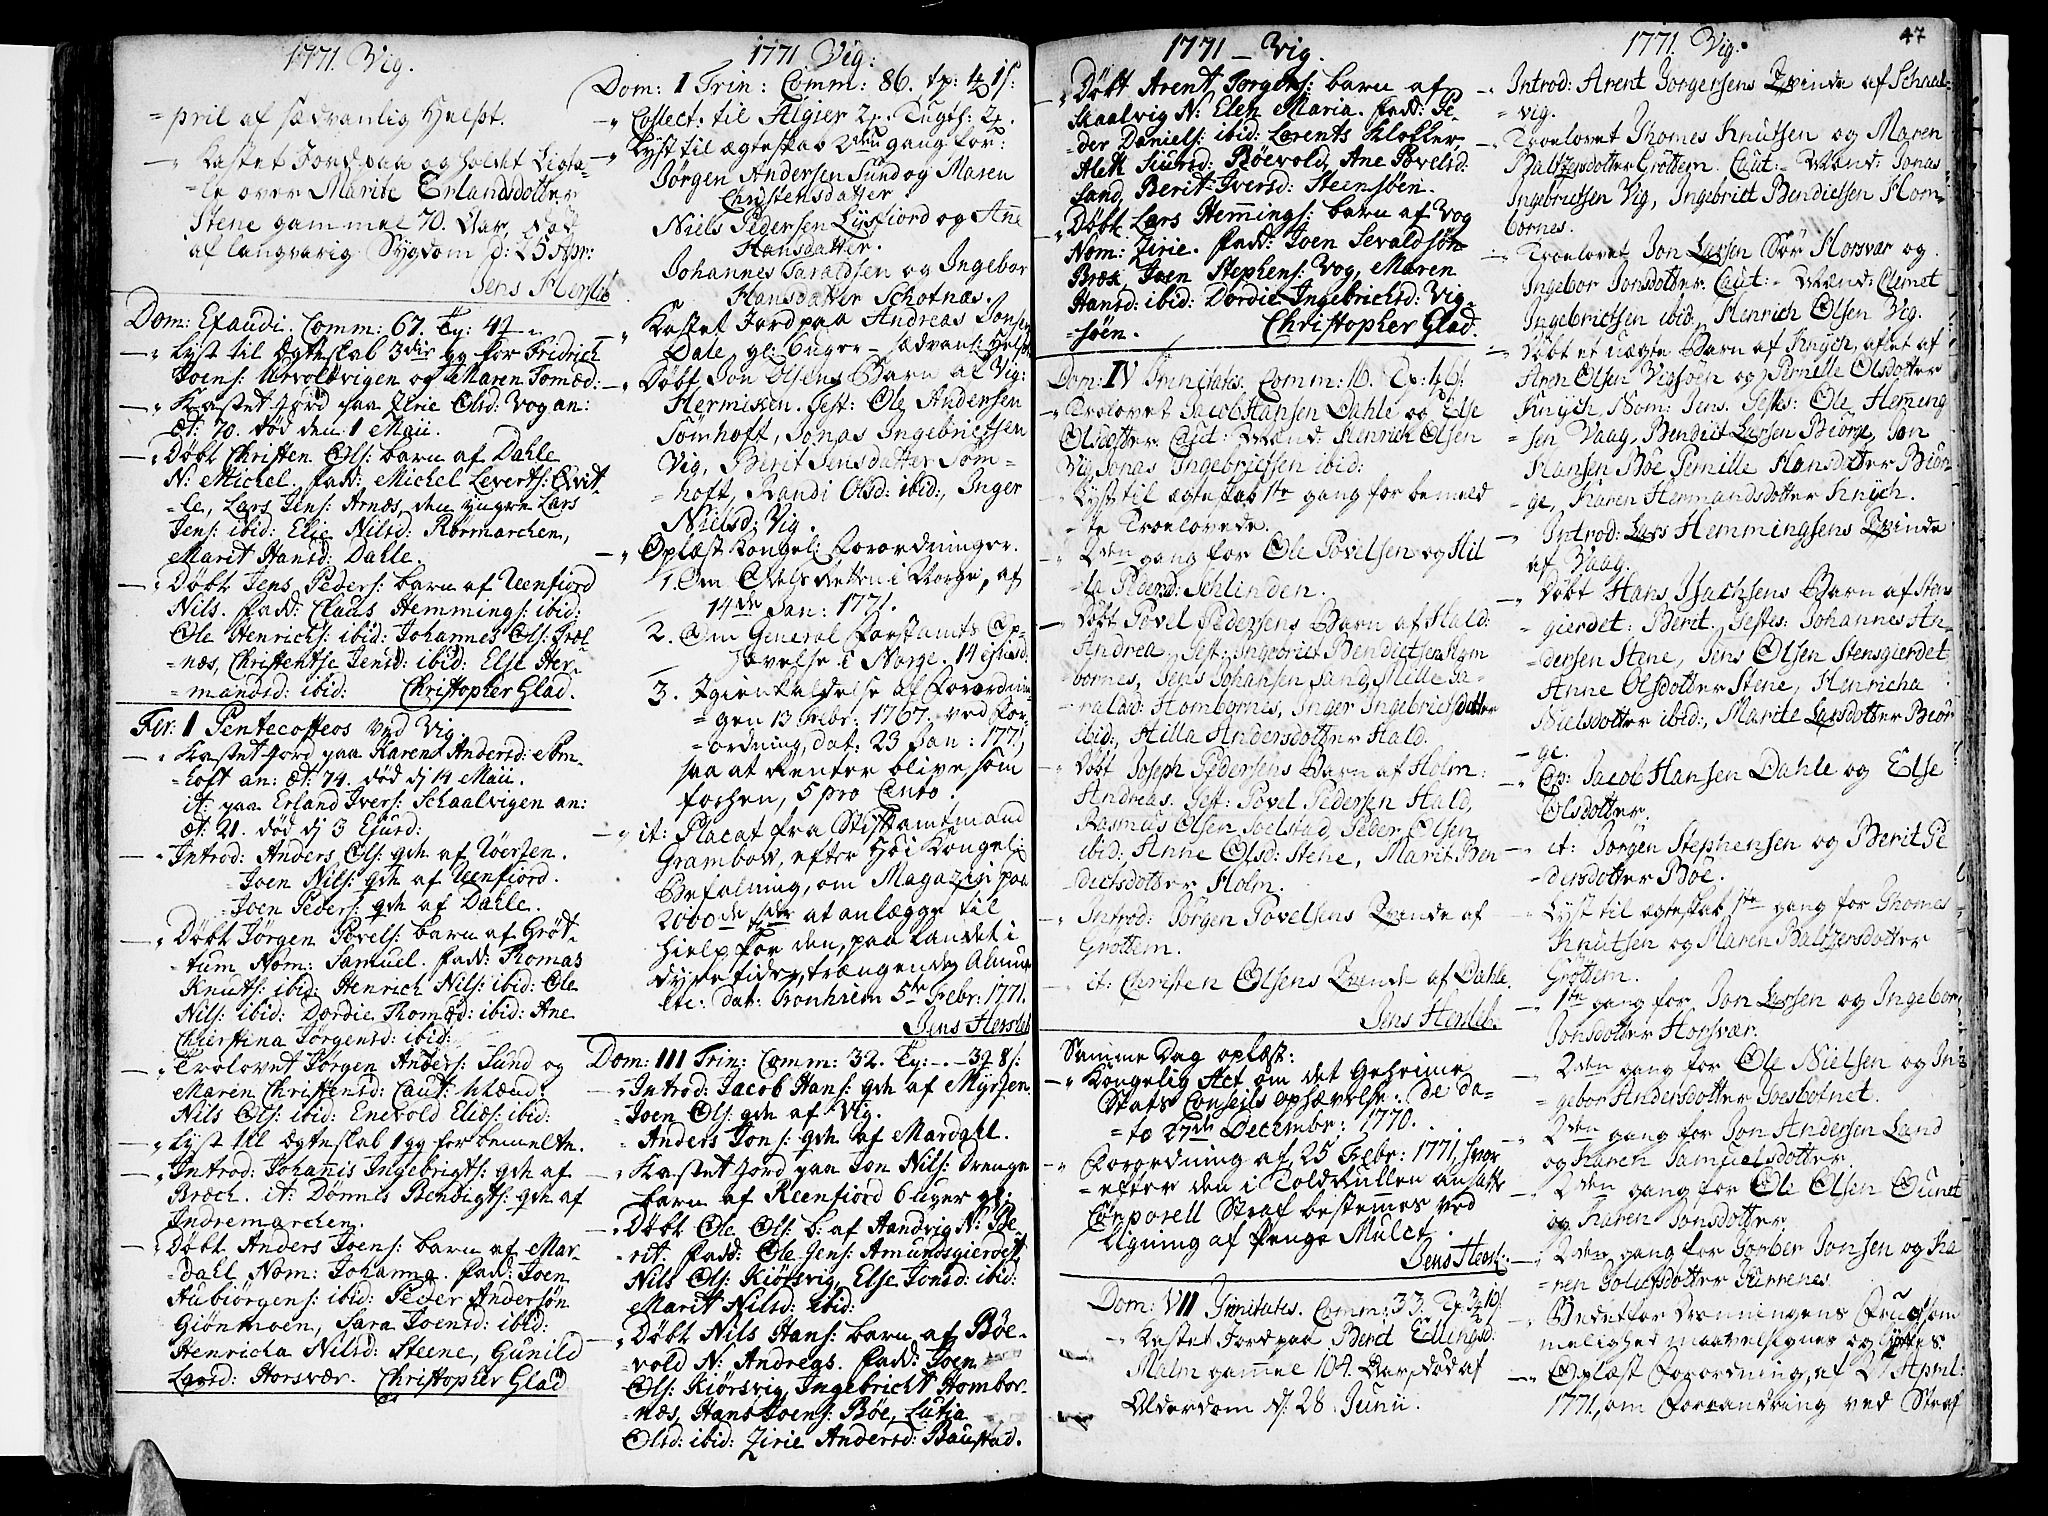 1771. Vig.
=pril af sædvanlig Helset.
—„ Kastet Jord paa og holdt Ligta-
-le over Marite Erlandsdotter
Stene gammel 70. Aar, død
af langvarig Sygdom d: 25 Apr:
Jens Hersleb
Dom: Exaudi. Comm: 67. Tp: 4
—„ Lyst til ægteskab 3die gg for Fridrich
Joens: Urvoldvigen og Maren Tomæd:
—„ Kastet jord paa Zirie Olsd: Vog an:
æt: 70. død den 1 Maii.
—„ Døbt Christen Ols: barn af Dahle
N: Michel. fadd: Michel Leverts: Qvit-
-le, Lars Jens: Arnæs, den yngre Lars
Jens: ibid: Elie Nilsd: Rørmarchen,
Marit Hansd: Dahle.
—„ Døbt Jens Peders: barn af Ueenfiord
Nils. fadd: Claus Hemmings: ibid:
Ole Henrichs: ibid: Johannes Ols: Træl-
-næs, Christentse Jensd: ibid: Else Her-
=mandsd: ibid: Christopher Glad.
Fer: 1 Pentecosteos ved Vig.
—„ Kastet jord paa Karen Andersd: Som-
=hoft an: æt: 74. død dj 14 Maii.
it: paa Erland Ivers: Schaalvigen an:
æt: 21. død dj 3 Ejusd:
—„ Introd: Anders Ols: qvh af
Joen Nils: qvh af Ueenfiord.
Joen Peders: qvh af Dahle.
—„ Døbt Jørgen Povels: barn af Grøt-
-tum Nom: Samuel. fadd: Thomas
Knuts: ibid: Henrich Nils: ibid: Ole
Nils: ibid: Dordie Thomæd: ibid: Ane
Chierstina Jørgensd: ibid:
—„ Trolovet Jørgen Anders: Sund og
Maren Christensd: Caut: Mænd
Nils Ols: ibid: Enevold Elies: ibid:
—„ Lyst till ægteskab 1 gg for bemelte.
—„ Introd: Johanis Ingebrigts: qvh af
Broch. it: Dønnis Bendigts: qvh af
Indremarchen.
—„ Døbt Anders Joens: barn af Mar-
-dahl Nom: Johanna. fadd: Joen
Aubiørgens: ibid: Peder Andersøn
Giønmoen, Sara Joensd: ibid:
Henricha Nilsd: Steene, Gunild
Larsd: Horsvær. Christopher Glad
1771 Vig:
Dom: 1 Trin: Comm: 86. tp: 4 1s:
—„ Collect: til Algier 2 . Tugts: 2 .
—„ Lyst til ægteskab 2den gang for:
Jørgen Andersen Sund og Maren
Christensdatter
Niels Pedersen Lysfiord og Ane
Hansdatter.
Johannes Taraldsen og Ingebor
Hansdatter Schotnæs.
„ Kastet Jord paa Andreas Jonsen
Dale gl: 6 uger - sædvanl: Helset
—„ Døbt Jon Olsens Barn af Vig:
Hermisken. Test: Ole Andersen
Somhoft, Jonas Ingebrictsen
Vig, Berit Jensdatter Som=
=hoft, Randi Olsd: ibid:, Inger
Nielsd: Vig.
—„ Oplæst Kongel: Forordninger.
1. Om Odels Retten i Norge, af
14de Jan: 1771.
2. Om General Forstamts Op-
hævelse i Norge. 14 ejusd:
3. Igienkaldelse af Forordnin-
=gen 13 Febr: 1767. ved For-
=ordning, dat: 23 Jan: 1771,
saa at Renter blive, som
forhen, 5 pro Cento.
—„ it: Placat fra Stiftamtmand
Grambow, efter Høi Kongel:
Befalning, om Magazin paa
2000de at anlægge til
Hielp for den, paa Landet i
dyrtetider, trængende Almue
etc: dat: Tronhiem 5te Febr: 1771.
Jens Hersleb
Dom: III Trin: Comm: 32. Tp: - - 3 8s:
—„ Introd: Jacob Hans: qvh af Myrsen.
Joen Ols: qvh af Vig.
Anders Jons: qvh af Mardahl.
—„ Kastet jord paa Jon Nils: Drenge
barn af Reenfiord 6 uger gl:
—„ Døbt Ole Ols: b: af Aandvig N: Be-
-rit. fadd: Ole Jens: Amundsgierdet
Nils Ols: Kiørsvig, Else Jonsd: ibid:
Marit Nilsd: ibid:
—„ Døbt Nils Hans: barn af Bøe-
-vold N: Andreas. fadd: Joen
Ols: Kiørsvig, Ingebricht Hombor-
=næs, Hans Joens: Bøe, Lutia
Olsd: ibid: Zirie Andersd: Baustad.
1771 - Vig.
„ Døbt Arent Jørgens: barn af
Skaalvig N: Elen Maria. fadd: Pe-
-der Daniels: ibid: Lorents Klokker,
Alet Siursd: Bøevold, Ane Povelsd:
Sand, Berit Iversd: Steensøen.
—„ Døbt Lars Hemmings: barn af Vog
Nom: Zirie. fadd: Joen Sevaldsøn
Bræk Joen Stephens: Vog, Maren
Hansd: ibid: Dordie Ingebrichsd: Vig-
-søen. Christopher Glad.
Dom: IV Trinitates. Comm: 16. Tp: 4 6s:
—„ Trolovet Jacob Hansen Dahle og Else
Olsdotter. Caut: Mænd: Henrich Olsen
Vig, Jonas Ingebrictsen ibid:
—„ Lyst til ægteskab 1te gang for bemeld
-te Troelovede.
—„ 2den gang for Ole Povelsen og Hil
-la Schlinden.
—„ Døbt Povel Pedersens Barn af Hald:
Andrea. Test: Ingebrict Bendictsen Hom
bornes, Jens Johansen Sand, Mille Ta-
-raldsd: Hombornes, Inger Ingebrictsdotter
ibid:, Hilla Andersdotter Hald.
—„ Døbt Joseph Pedersens Barn af Holm:
Andreas. Test: Povel Pedersen Hald,
Rasmus Olsen Soelstad, Peder Olsen
ibid:, Anne Olsd: Stene, Marit Ben
-dictsdotter Holm.
—„ Introd: Jørgen Povelsens Qvinde af
Grøttem.
—„ it: Christen Olsens Qvinde af Dahle.
Jens Hersleb:
Samme Dag oplæst:
—„ Kongelig Act om det Geheime
Stats Conseils ophævelse. De da-
=to 27de Decembr: 1770.
—„ Forordning af 25 Febr: 1771, hvor
=efter den i Toldrullen ansatte
Corporell Straf bestemes ved
Ligning af Penge Mulct.
Jens Hersl:
Dom: VII Trinitates. Comm: 33. Tp: 3 10s
—„ Kastet Jord paa Beret Ellingsd:
Malm gammel 104. Aar, død af
Alderdom d: 28 Junii.
1771. Vig.
47
—„ Introd: Arent Jørgersens Qvinde af Schaal-
=vig.
—„ Troelovet Thomes Knutsen og Maren
Baltzersdotter Grøttem. Caut:- Mænd: Jonas
Ingebrictsen Vig, Ingebrict Bendictsen Hom-
bornes.
—„ Troelovet Jon Larsen Sør Horsvær og
Ingebor Jonsdotter. Caut:- Mænd: Clemet
Ingebrictsen ibid:, Henrich Olsen Vig.
—„ Døbt et uægte Barn af Knych, aflet af
Aren Olsen Vigsøen og Pernille Olsdotter
Knych, Nom: Jens. Testes: Ole Heming
-sen Vaag, Bendict Larsen Biørge, Jon
Hansen Bøe Pernille Hansdotter Biør-
ge, Karen Hermandsdotter Knych.
—„ Introd: Lars Hemmingsens Qvinde
af Vaag.
—„ Døbt Hans Isachsens Barn af Stens
=gierdet: Berit. Testes: Johannes An-
=dersen Stene, Jens Olsen Stensgierdet
Anne Olsdotter Stene, Henricha
Nielsdotter ibid:, Marite Larsdotter Biør
-ge.
—„ Cop: Jacob Hansen Dahle og Else
Olsdotter.
—„ it: Jørgen Stephensen og Berit Pe
-dersdotter Bøe.
—„ Lyst til ægteskab 1te gang for Thomes
Knutsen og Maren Baltzersdotter
Grøttem.
—„ 1te gang for Jon Larsen og Ingebor
Jonsdotter Horsvær.
—„ 2den gang for Ole Nielsen og In-
-gebor Andersdotter
—„ 2den gang for Jon Andersen Lund
og Karen Samuelsdotter.
—„ 2den gang for Ole Olsen
og Karen Jonsdotter
—„ 2den gang for Torber Jonsen og Ka
-ren
—„ Bedet for Dronningens Frugtsom
melighed maatte velsignes og
—„ Oplæst Forordning, af 27 April:
1771, om Forandring ved Straf